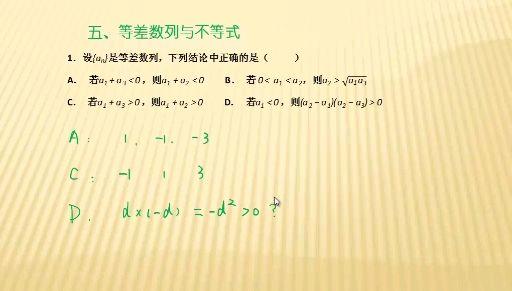 五、等差数列与不等式
1. 设{aₙ}是等差数列，下列结论中正确的是（ ）
A. 若a₁ + a₃ <0，则a₁ + a₂ <0 B. 若 0< a₁ <a₂，则a₂ > √a₁a₃
C. 若a₁ + a₃ >0，则a₁ + a₂ >0 D. 若a₁ <0，则(a₂ − a₁)(a₂ − a₃) >0
A: 1, -1, -3
C: -1 1 3
D. d×(-d) = -d² >0 ?